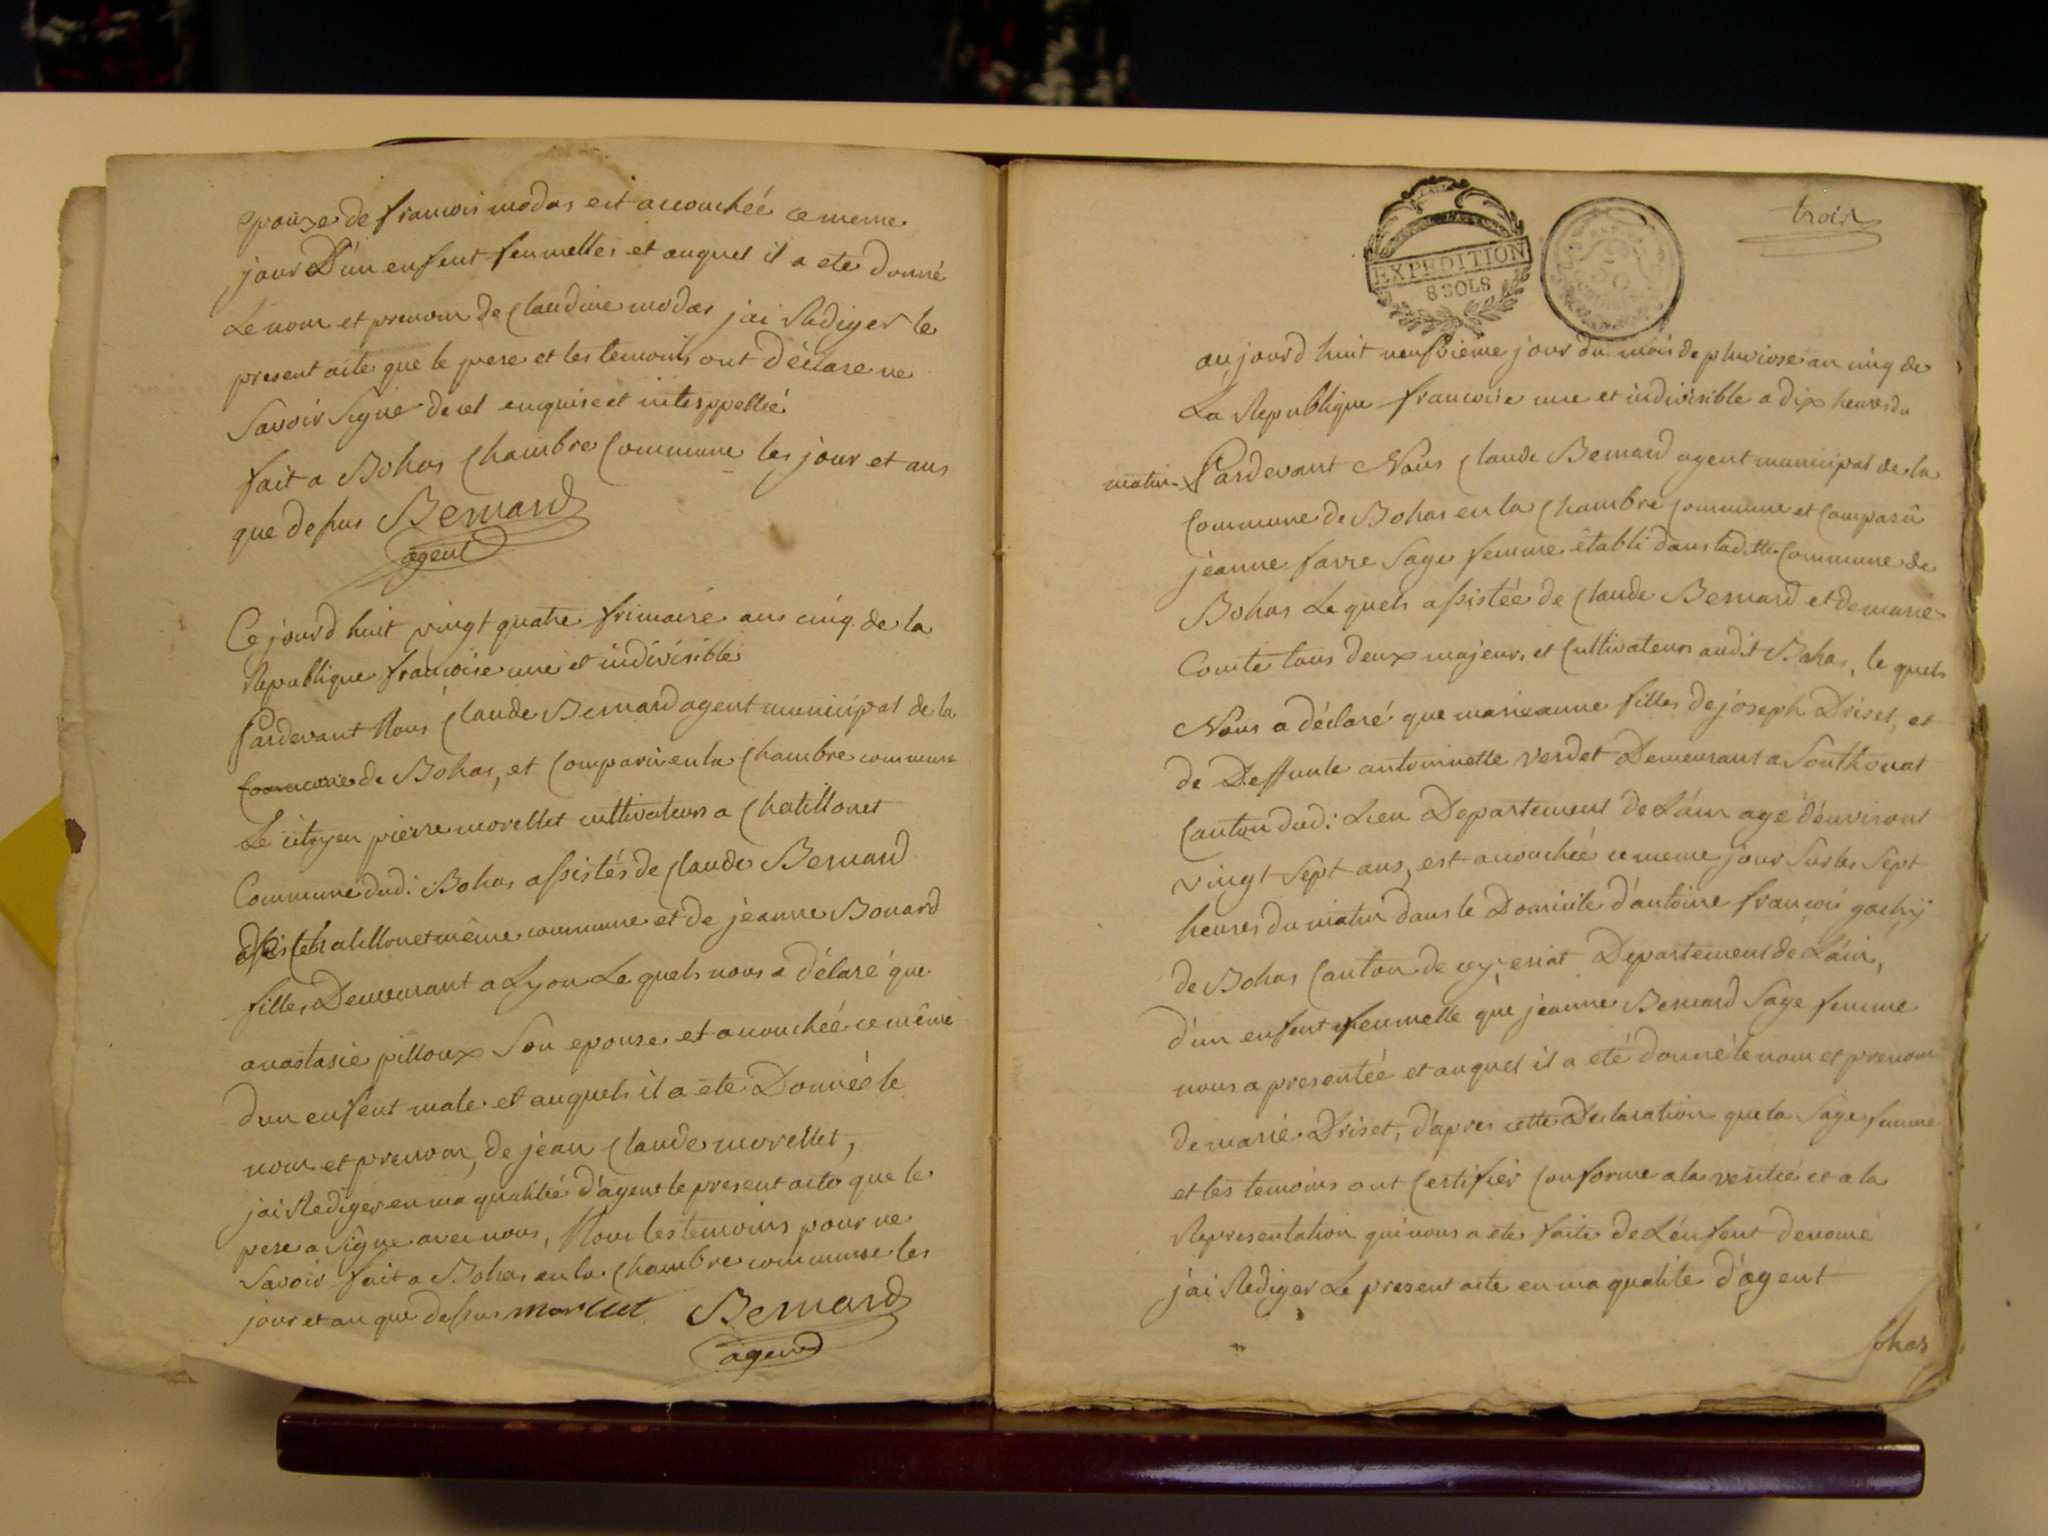 epouze de francois modas est accouchée ce meme
jour D'un enfent feumelles et auquel il a ete donné
Le nom et prenom de Claudine modas jai Rediger le
present acte que le pere et les temoins ont déclare ne
Savoir Signé de cet enquise et interppellée
fait a Bohas Chambre Commune les jour et ans
que dessus Bernard
agent
Ce jourd huit vingt quatre frimaire ans cinq de la
Republique francoise une et indivisible
Pardevant Nous Claude Bernard agent municipal de la
Commune de Bohas, et Comparu en la Chambre commune
Le citoyen pierre morellet cultivateurs a Chatillonet
Commune dud: Bohas assistés de Claude Bernard
Chatillonet même commune et de jeanne Bonard
filles Demeurant a Lyon Le quels nous a délaré que
anastasie pilloux Son epouse et accouchée ce même
dun enfent male et auquels il a ete Donnéé le
nom et prenom, de jean Claude morellet,
jai Rediger en ma qualitée d'agent le present acte que le
pere a Signe avec nous, Non les temoins pour ne
Savoir fait a Bohas en la Chambre commune les
jour et an que dessus morellet Bernard
agend
trois
EXPEDITION
8 SOLS
aujourd huit neufvieme jour du mois de pluviose an cinq de
La Republique francoise une et indivisible a dix heures du
matin Pardevant Nous Claude Bernard agent municipal de la
Commune de Bohas en la Chambre Commune et Comparû
jeanne favre Sage femme établi dans ladtte Commune de
Bohas Le quels assistée de Claude Bernard et de marie
Comte tous deux majeurs et Cultivateurs audit Bohas, le quels
Nous a déclaré que marieanne filles de joseph Driset, et
de Deffunte antoinnette verdet Demeurant a Southonat
Canton dud: Lieu Departement de L'ain agé d'environt
vingt Sept ans, est accouchée ce meme jour Sur les Sept
heures du matin dans le Domicile d'antoine francois gachÿ
de Bohas Canton de ceyzeriat Departement de L'ain,
d'un enfent feumelle que jeanne Bernard Sage femme
nous a presentée et auquel il a eté donné le nom et prenom
de marie Driset, d'apres cette Declaration que la Sage femme
et les temoins ont Certifier Conforme a la veritée et a la
Representation qui nous a ete faite de L'enfent denomé
j'ai Rediger Le present acte en ma qualite d'agent